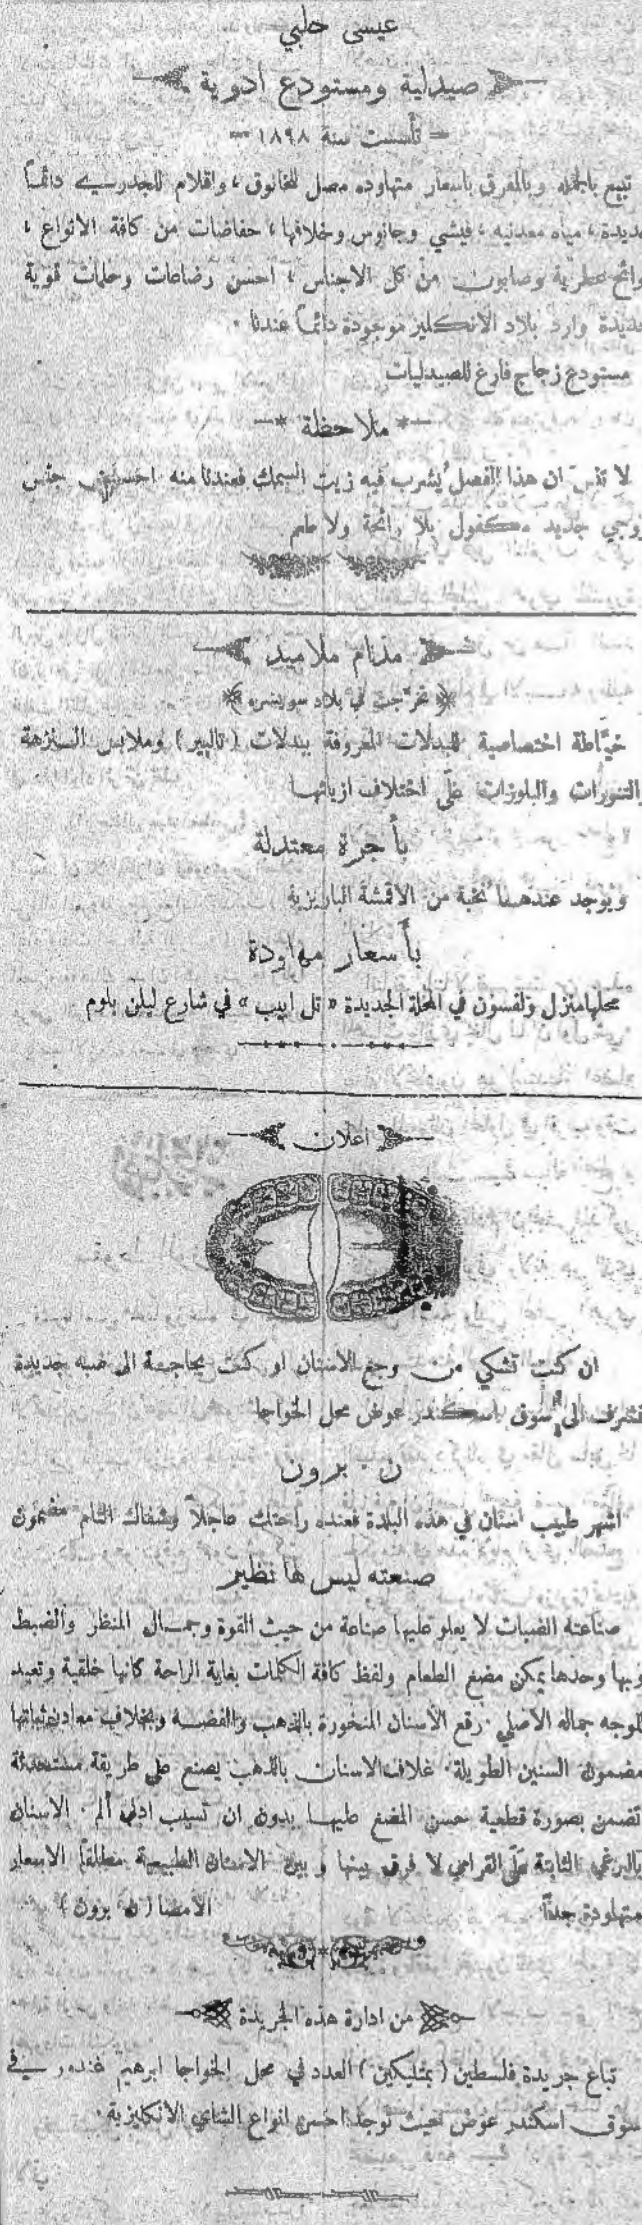 عيسى حلبي
صيدلية ومستودع أدوية
تأسست سنة ١٨٩٨
تبيع بالجمله وبالمفرق باسعار متهاوده مصل للخانوق ، واقلام للجدري دائماً
جديدة ، مياه معدنيه ، فيشي وجانوس وخلافها ، حفاضات من كافة الانواع ،
روائح عطرية وصابون من كل الاجناس ، احسن رضاعات وحلمات قوية
جديدة وارد بلاد الانكليز موجودة دائماً عندنا .
مستودع زجاج فارغ للصيدليات
ملاحظة
لا تنس ان هذا الفصل يُشرب فيه زيت السمك فعندنا منه احسن جنس
نروجي جديد مكفول بلا رائحة ولا طعم
مدام ملاميد
تخرّجت في بلاد سويسره
خيّاطة اختصاصية للبدلات المعروفة ببدلات (تاليير) وملابس النزهة
التنورات والبلوزات على اختلاف ازيائها
بأجرة معتدلة
ويوجد عندها نخبة من الاقمشة الباريزية
بأسعار مهاودة
محلها منزل ولفسون في المحلة الجديدة « تل ابيب » في شارع ليلن بلوم
اعلان
ان كنت تشكي من وجع الاسنان او كنت بحاجة الى ضبه جديدة
فشرف الى سوق اسكندر عوض محل الخواجا
ن . برون
اشهر طبيب اسنان في هذه البلدة فعنده راحتك عاجلاً وشفاك التام مضمون
صنعته ليس لها نظير
صناعته الضبات لا يعلو عليها صناعة من حيث القوة وجمال المنظر والضبط
وبها وحدها يمكن مضغ الطعام ولفظ كافة الكلمات بغاية الراحة كانها خلقية وتعيد
للوجه جماله الاصلي . رقع الأسنان المنخورة بالذهب والفضة وبخلاف معادن ثباتها
مضمون السنين الطويلة . غلاف الاسنان بالذهب يصنع على طريقة مستحدثة
تضمن بصورة قطعية حسن المضغ عليها بدون ان تسبب ادنى ألم . الاسنان
بالبرغي الثابتة على القرامي لا فرق بينها وبين الاسنان الطبيعية مطلقاً الاسعار
متهاودة جداً الامضا ( ن . برون )
من ادارة هذه الجريدة
تباع جريدة فلسطين ( بمتليكين ) العدد في محل الخواجا ابرهيم غندور في
سوق اسكندر عوض حيث توجد احسن انواع الشاي الانكليزية .